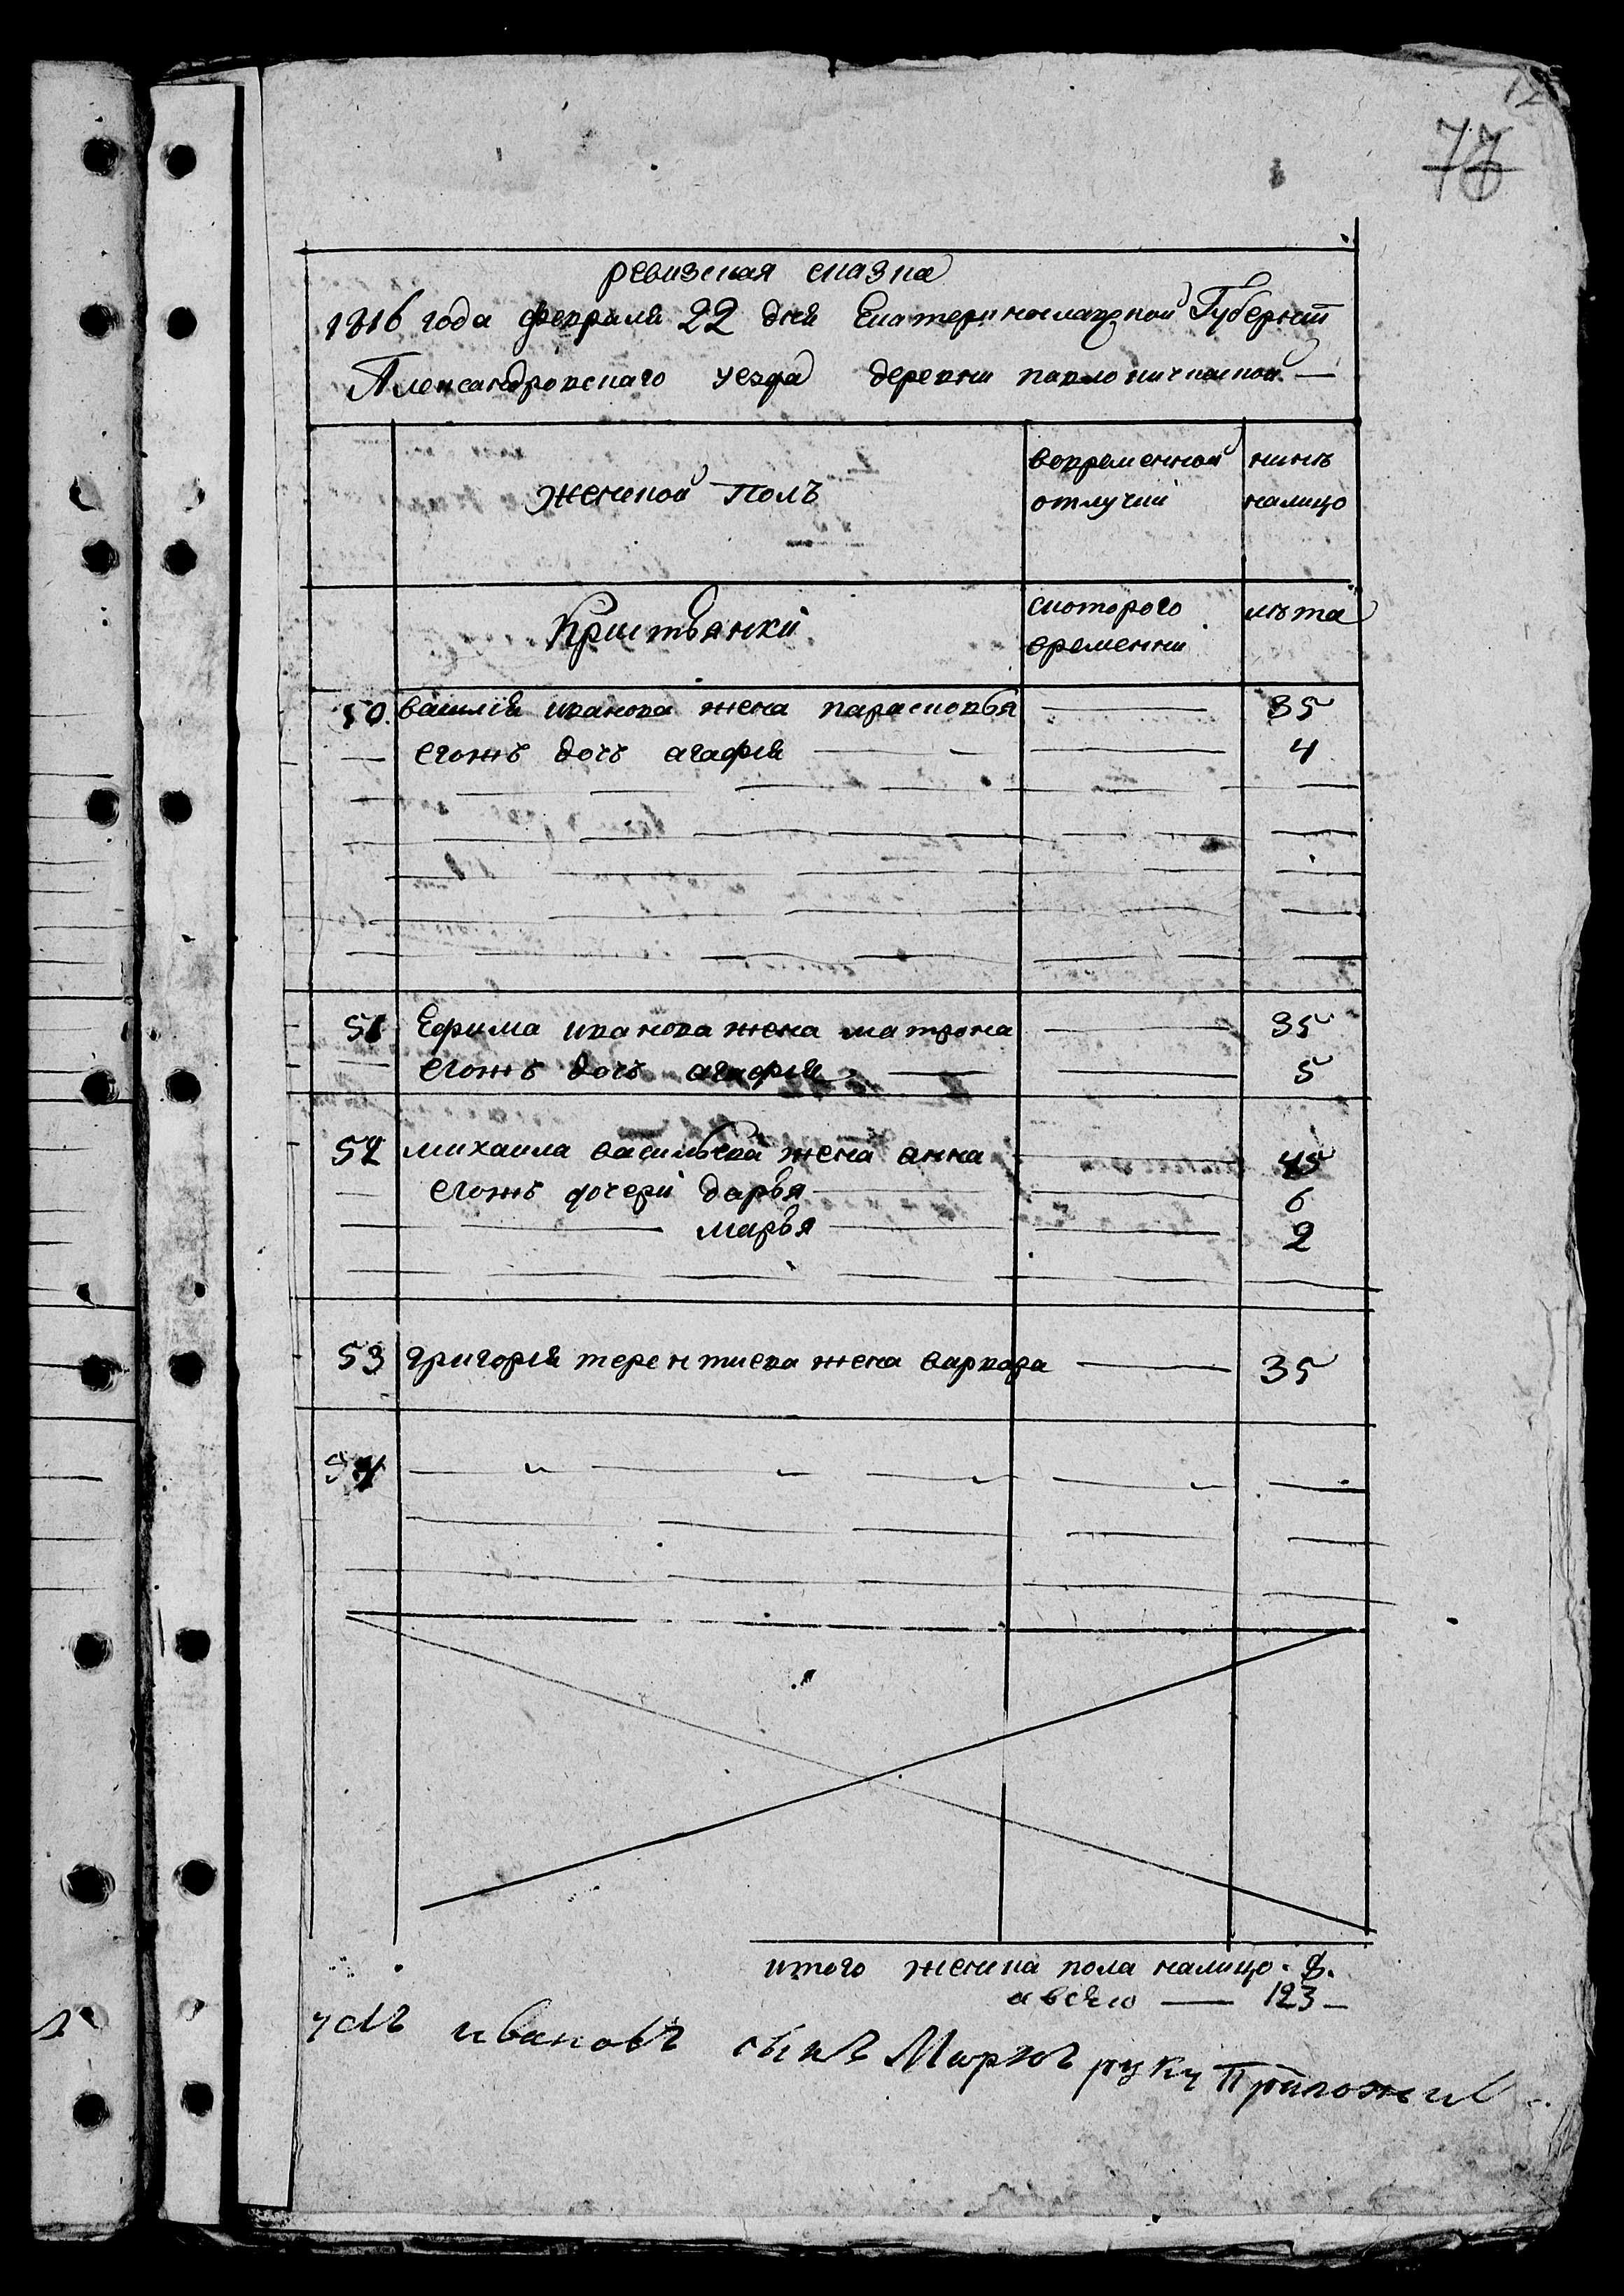 77
ревизская сказка
1816 года февраля 22 дня Екатеринославской Губернїи
Александровскаго уезда деревни павловичкиной
женской полъ
вовременной отлучкї
нинѣ налицо
Крестьянкї
скоторого временни
лѣта
50. василїя иванова жена парасковья 35
егожъ дочь агафїя 4
51 Ефима иванова жена матрона 35
егожъ дочь агафїя 5
52 михаила васильева жена анна 45
егожъ дочерї дарья 6
марья 2
53 григорїя терентиева жена варвара 35
54
итого женска пола налицо 8.
а всѣго 123
ивановъ сынъ Марко руку Приложил